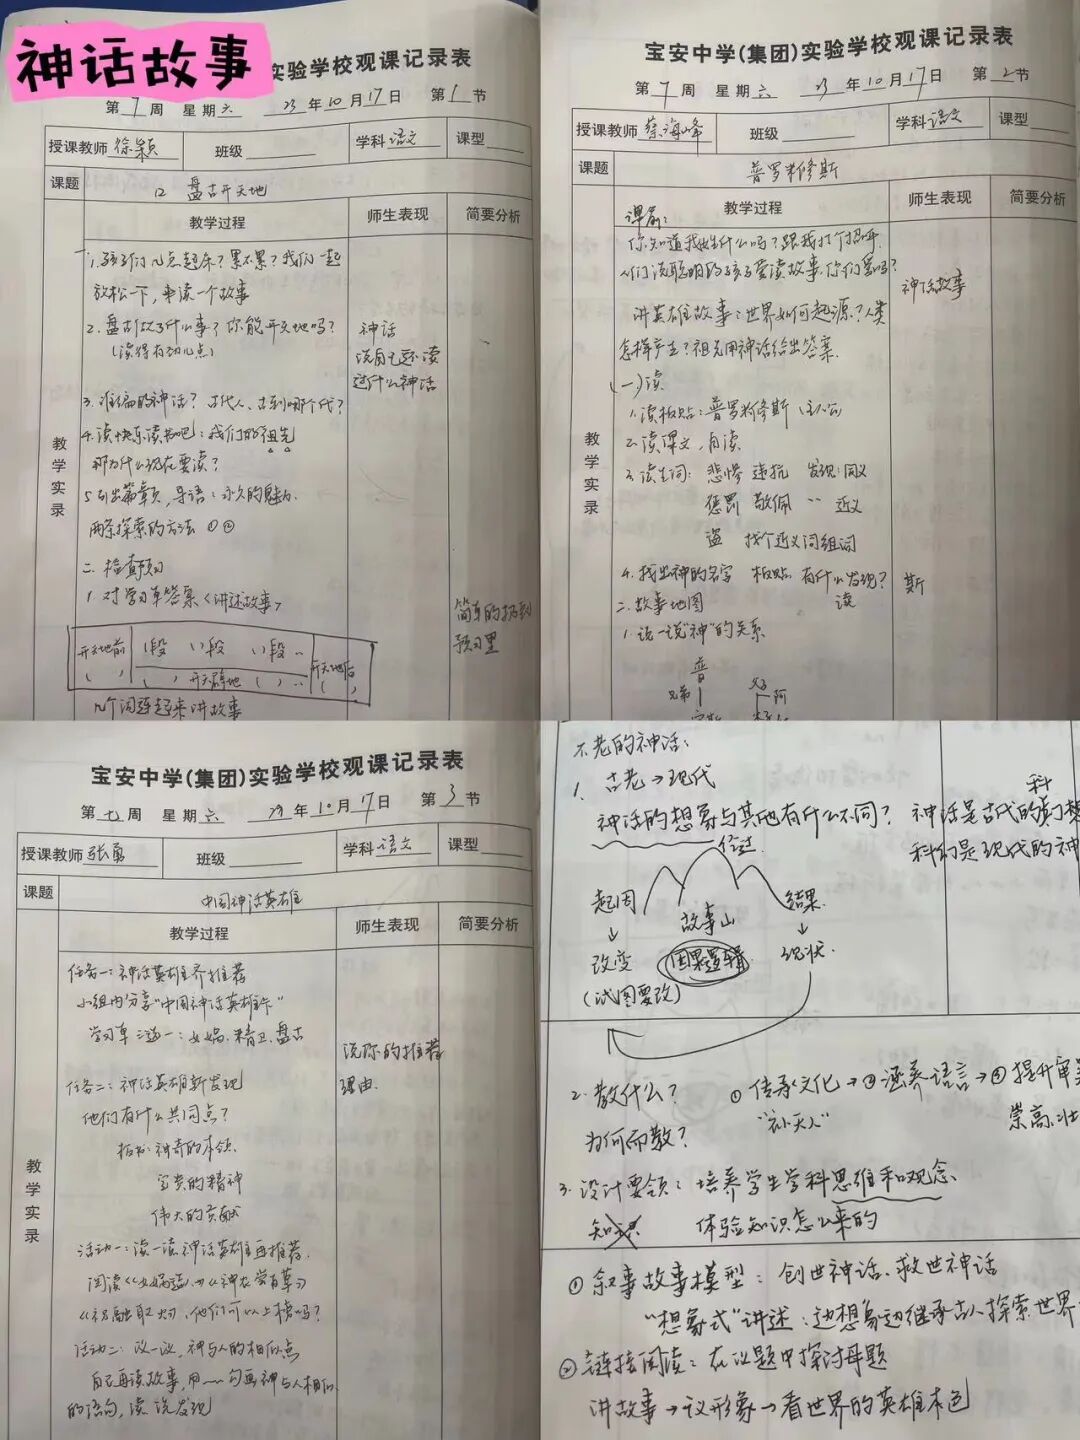 神话故事
实验学校观课记录表
第7周 星期六 23年10月17日 第1节
授课教师 徐颖 班级 学科 语文 课型
课题 12 盘古开天地
教学过程 师生表现 简要分析
教学实录
1.孩子们几点起床？累不累？我们一起
放松一下，来读一个故事
2.盘古做了什么事？你能开天地吗？
(读得有劲儿点)
神话
说自己还读
过什么神话
3.谁编的神话？古代人、古到哪个代？
4.读快乐读书吧：我们的祖先
那为什么现在要读？
5.引出篇章页，导语：永久的魅力
两条探索的方法 ① ②
二.检查预习
1.对学习单答案《讲述故事》
简单的拐到
预习里
开天地前 1段 11段 11段 开天地后
( ) ( ) 开天辟地 ( ) ( )
几个词连起来讲故事
宝安中学(集团)实验学校观课记录表
第7周 星期六 23年10月17日 第2节
授课教师 蔡海峰 班级 学科 语文 课型
课题 普罗米修斯
教学过程 师生表现 简要分析
教学实录
课前：
你知道我姓什么吗？跟我打个招呼.
人们说聪明的孩子爱读故事.你们爱吗？
神话故事
讲英雄故事：世界如何起源？人类
怎样产生？祖先用神话给出答案.
(一)读
1.读板贴：普罗米修斯 主人公
2.读课文，自读
3.读生词：悲惨 违抗 发现：同义
惩罚 敬佩 “ 近义
盗 找个近义词组词
4.找出神的名字 板贴 有什么发现？ 斯
读
二.故事地图
1.说一说“神”的关系
普
兄弟 父子 阿
宝安中学(集团)实验学校观课记录表
第七周 星期六 23年10月17日 第3节
授课教师 张勇 班级 学科 语文 课型
课题 中国神话英雄
教学过程 师生表现 简要分析
教学实录
任务一：神话英雄齐推荐
小组内分享“中国神话英雄卡”
学习单三选一：女娲.精卫.盘古
说你的推荐
理由.
任务二：神话英雄新发现
他们有什么共同点？
板书：神奇的本领.
宝贵的精神
伟大的贡献
活动一：读一读神话英雄再推荐.
阅读《女娲造人》《神农尝百草》
《祝融取火》，他们可以上榜吗？
活动二：议一议，神与人的相似点
自己再读故事，用﹏勾画神与人相似
的语句，读、说发现
不老的神话：
1. 古老→现代
神话的想象与其他有什么不同？
科
神话是古代的幻想
科幻是现代的神
经过
起因 故事山 结果
改变 因果逻辑 现状
(试图要改)
2.教什么？ ①传承文化→②涵养语言→③提升审美
“补天” 崇高.壮
为何而教？
3.设计要领：培养学生学科思维和观念
知识 体验知识怎么来的
①叙事故事模型：创世神话.救世神话
“想象式”讲述：边想象边继承古人探索世界
②链接阅读：在议题中探讨母题
讲故事→议形象→看世界的英雄本色